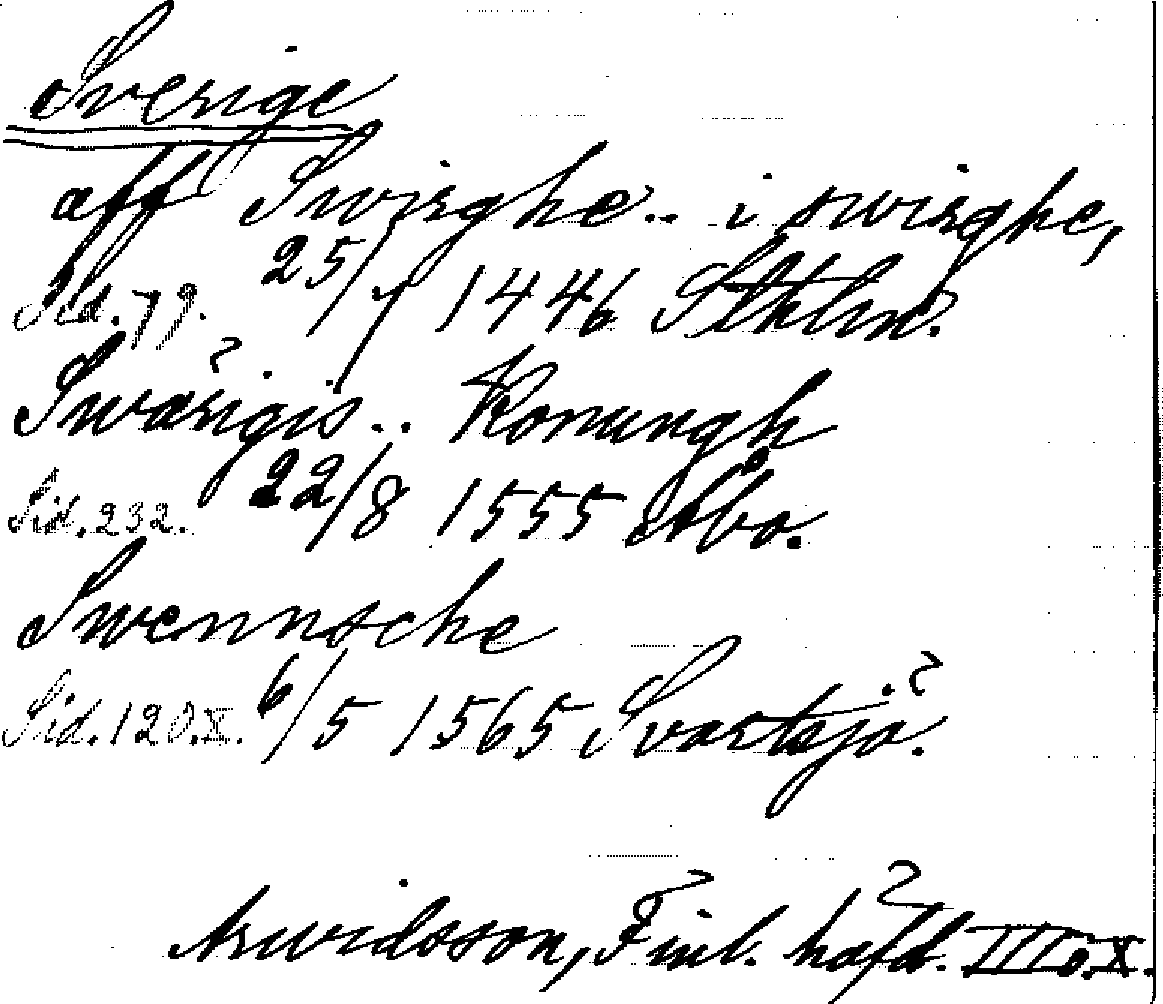 Sverige
aff Swirghe.. i swirghe,
Sid. 79. 25/7 1446 Sthlm.
Swärigis.. Konungh
Sid. 232. 22/8 1555 Åbo.
Swennsche
Sid. 120.X. 6/5 1565 Svartsjö.
Arwidsson, Finl. häfd. III o. X.